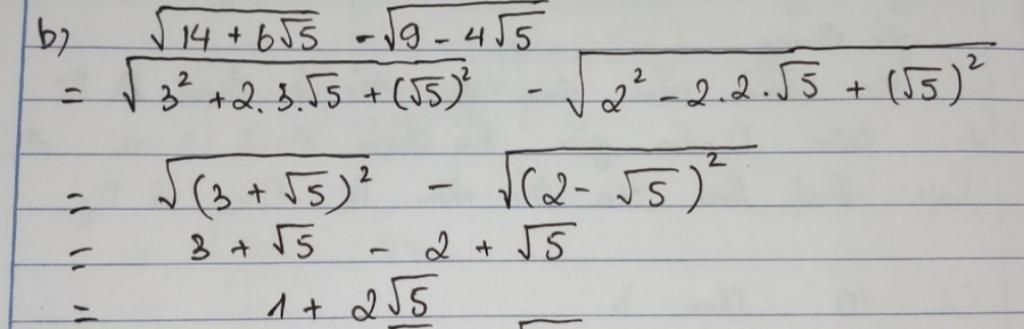 b) √(14 + 6√5) - √(9 - 4√5)
= √(3² + 2.3.√5 + (√5)²) - √(2² - 2.2.√5 + (√5)²)
= √((3 + √5)²) - √((2 - √5)²)
= 3 + √5 - 2 + √5
= 1 + 2√5